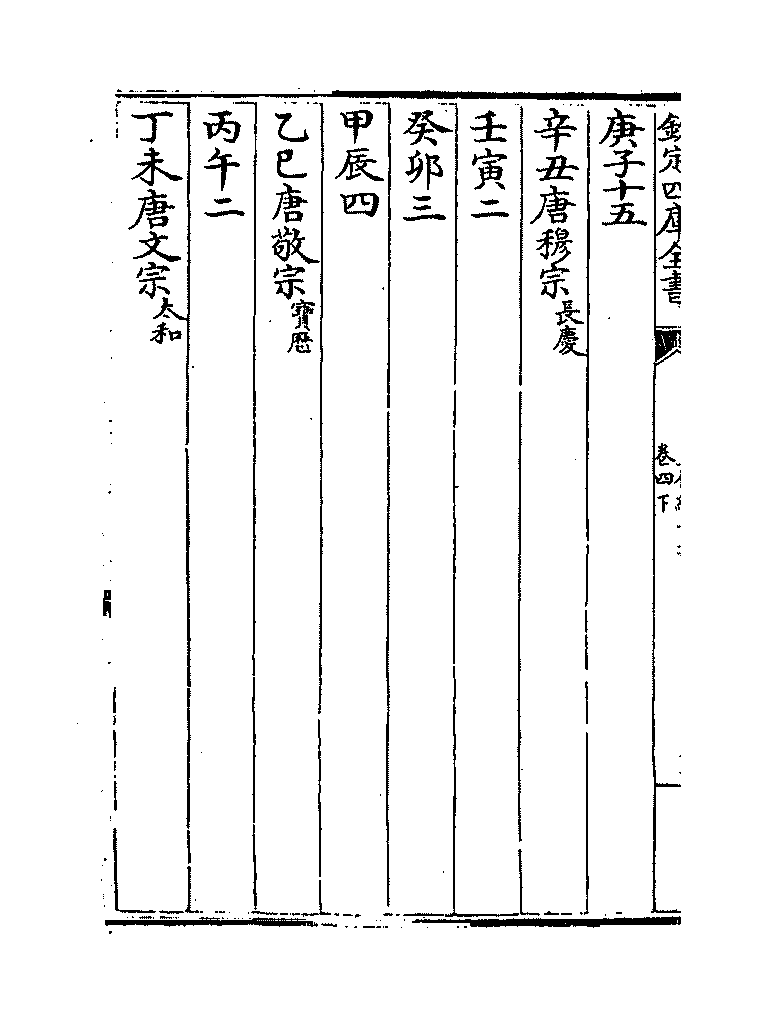 欽定四庫全書
卷四下
庚子十五
辛丑唐穆宗長慶
壬寅二
癸卯三
甲辰四
乙巳唐敬宗寶曆
丙午二
丁未唐文宗太和